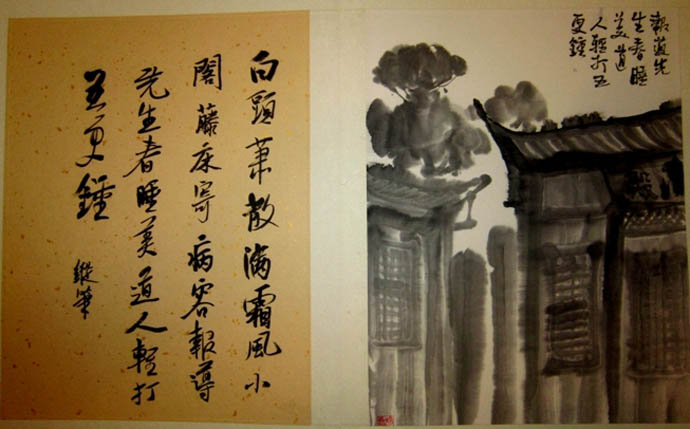 白頭蕭散滿霜風小
閣藤床寄病容報導
先生春睡美道人輕打
五更鍾
縱筆
報道先
生春睡
美道
人輕打五
更鍾